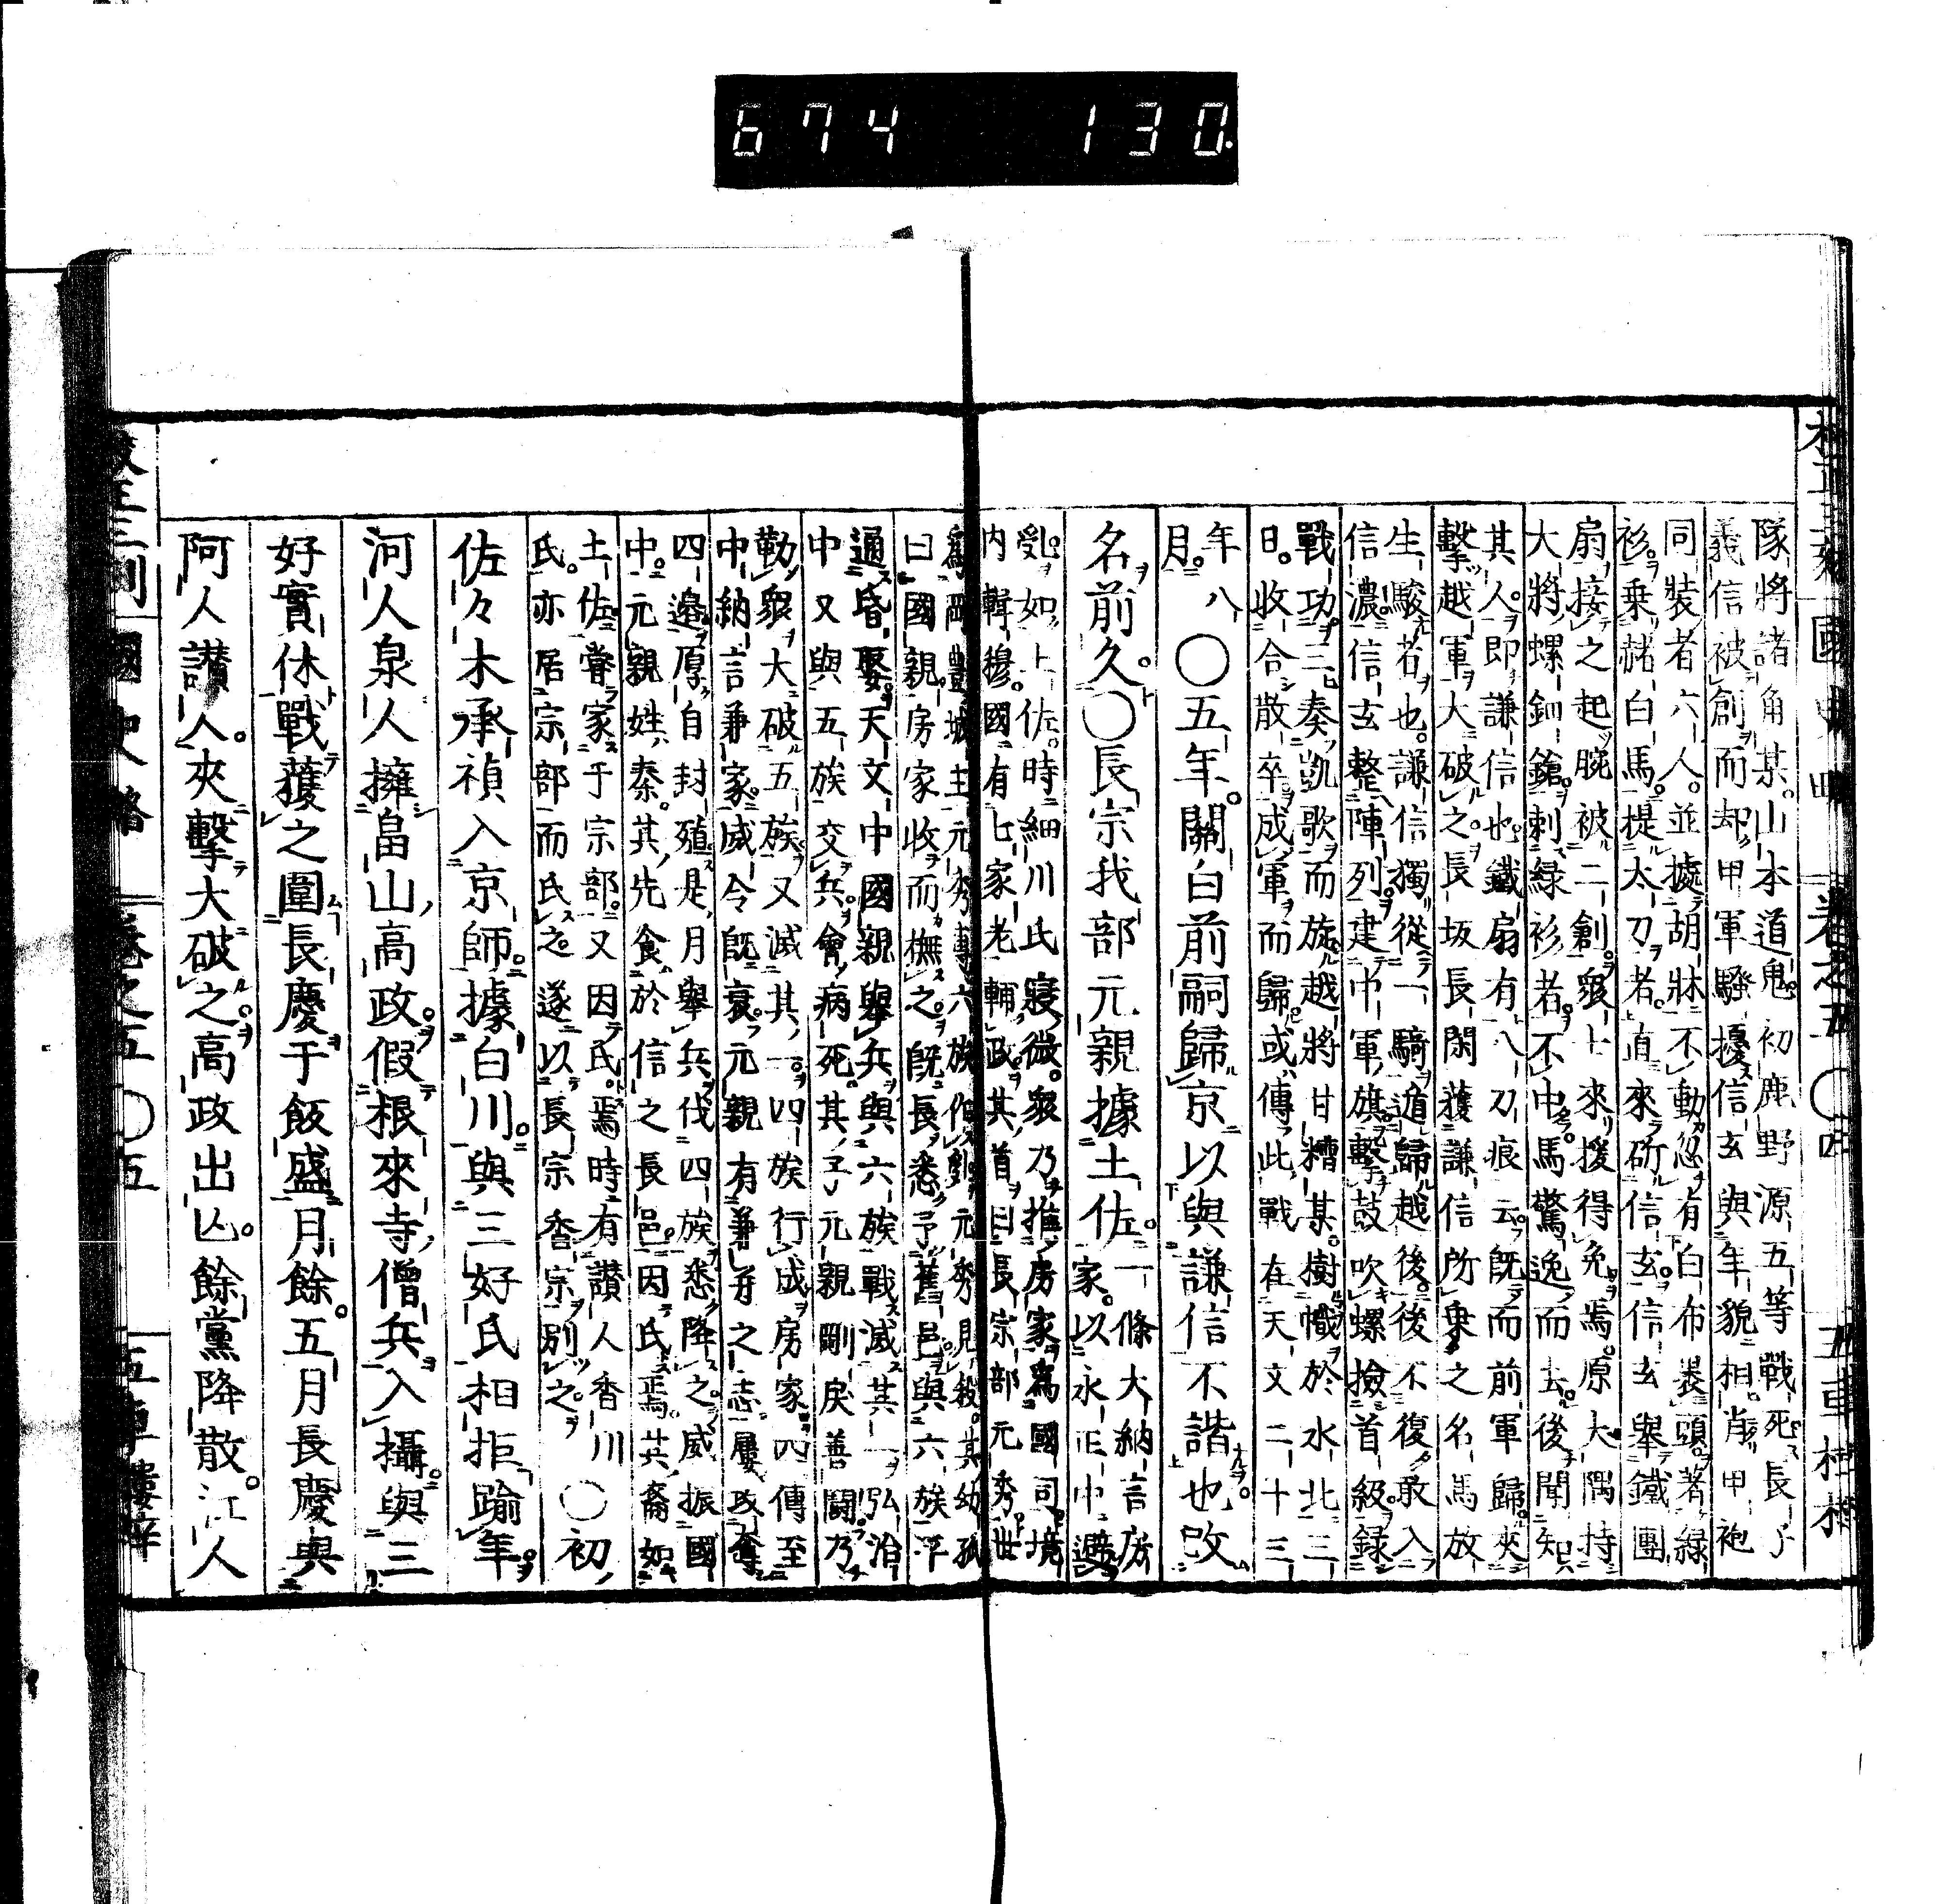 674 130
國史略 卷之五 〇四 五車樓梓
隊將諸角某山本道鬼初鹿野源五等戰死長子
義信被創而却甲軍騷擾信玄與年貌相肖甲袍
同裝者六人並據胡牀不動忽有白布裹頭著綠
衫乘赭白馬提太刀者直來斫信玄信玄舉鐵團
扇接之起腕被二創衆士來援得免焉原大隅持
大將螺鈿鎗刺綠衫者不中馬驚逸而去後聞知
其人即謙信也鐵扇有八刀痕云既而前軍歸夾
擊越軍大破之長坂長閑獲謙信所乗之名馬放
生駿者也謙信獨從一騎遁歸越後後不復敢入
信濃信玄整陣列建中軍旗擊鼓吹螺撿首級錄
戰功三奏凱歌而旋越將甘糟某樹幟於水北三
日收合散卒成軍而歸或傳此戰在天文二十三
年八
月〇五年關白前嗣歸京以與謙信不諧也改
名前久〇長宗我部元親據土佐
一條大納言房
家以永正中避
亂如土佐時細川氏寖微衆乃推房家爲國司境
内輯穆國有七家老輔政其首曰長宗部元秀世
爲岡豐城主元秀專六族作亂元秀見殺其幼孤
曰國親房家收而撫之既長悉予舊邑與六族平
通昏娶天文中國親舉兵與六族戰滅其一弘治
中又與五族交兵會病死其子元親剛戾善鬪乃
勒衆大破五族又滅其一四族行成房家四傳至
中納言兼家威令既衰元親有兼幷之志屢攻奪
四邊厚自封殖是月舉兵伐四族悉降之威振國
中元親姓秦其先食於信之長邑因氏焉其裔如
土佐甞家于宗部又因氏焉時有讃人香川
氏亦居宗部而氏之遂以長宗香宗別之
〇初
佐々木承禎入京師據白川與三好氏相拒踰年
河人泉人擁畠山高政假根來寺僧兵入攝與三
好實休戰獲之圍長慶于飯盛月餘五月長慶與
阿人讃人夾擊大破之高政出亾餘黨降散江人
校正三刻 國史略 卷之五 〇五 五車樓梓